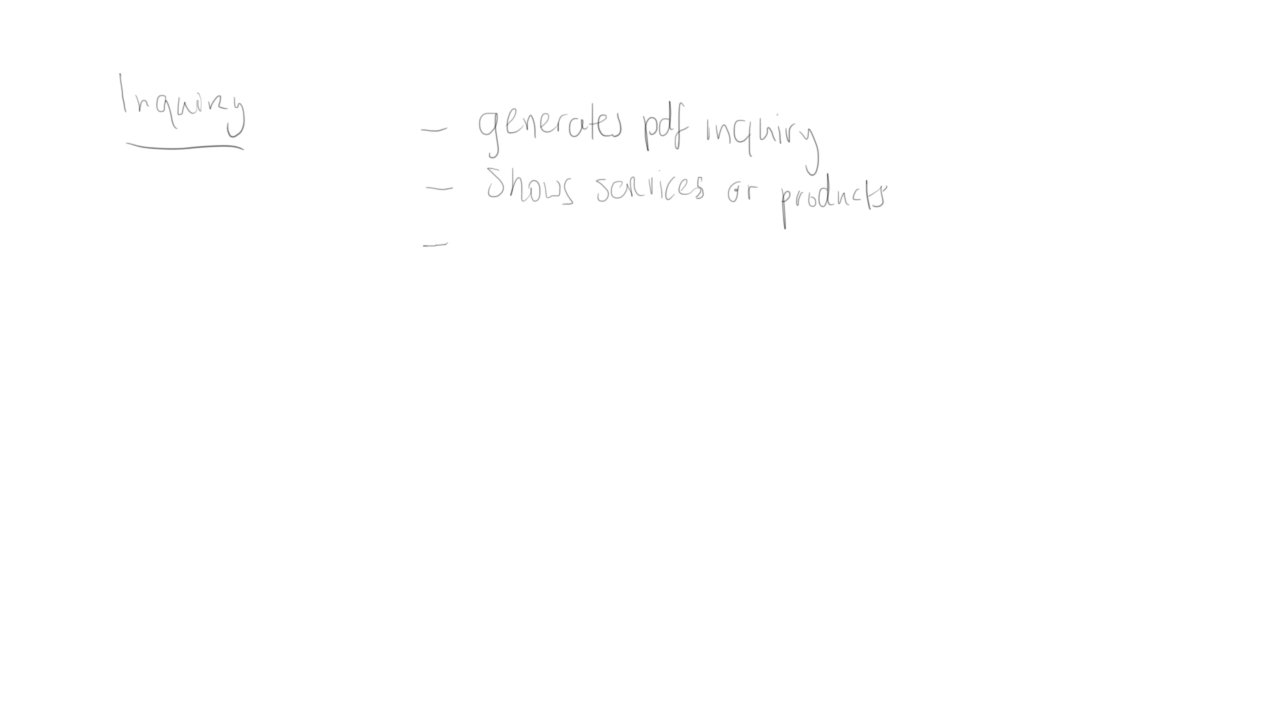 Inquiry
- generates pdf inquiry
- Shows services or products
-